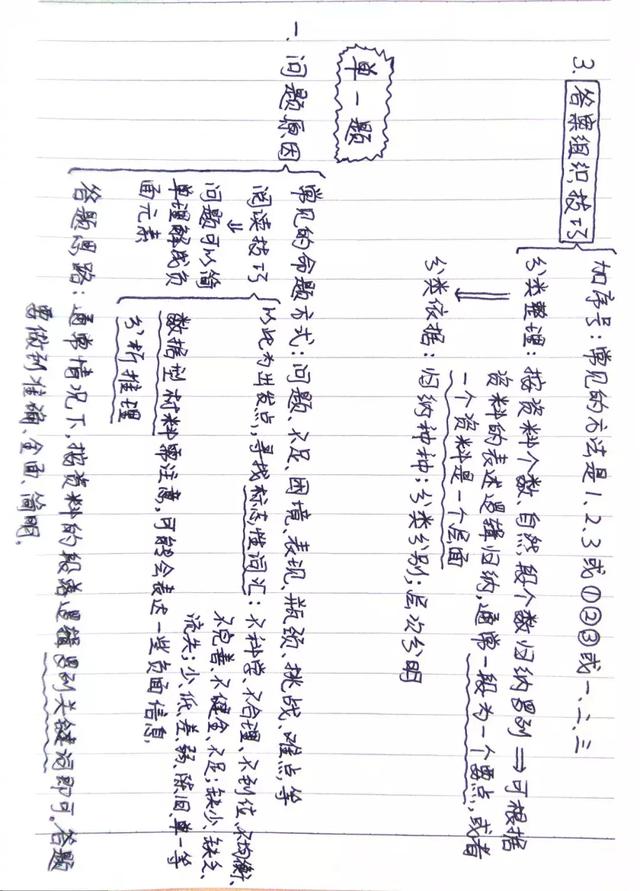 3. 答案组织技巧
加序号：常见的方法是1、2、3或①②③或一、二、三
分类整理：按资料个数、自然段个数归纳罗列⇒可根据
资料的表述逻辑归纳，通常一段为一个要点，或者
一个资料是一个层面
分类依据：归纳种种；分类分别；层次分明
单一题
一、问题原因
常见的命题方式：问题、不足、困境、表现、瓶颈、挑战、难点，等
阅读技巧
问题可以简
单理解成负
面元素
以此为出发点，寻找标志性词汇：不科学、不合理、不到位、不均衡、
不完善、不健全、不足；缺少、缺乏、
流失；少、低、差、弱、陈旧、单一等
数据型材料要注意，可能会表述一些负面信息，
分析推理
答题思路：通常情况下，按资料的段落逻辑罗列关键词即可。答题
要做到准确、全面、简明。